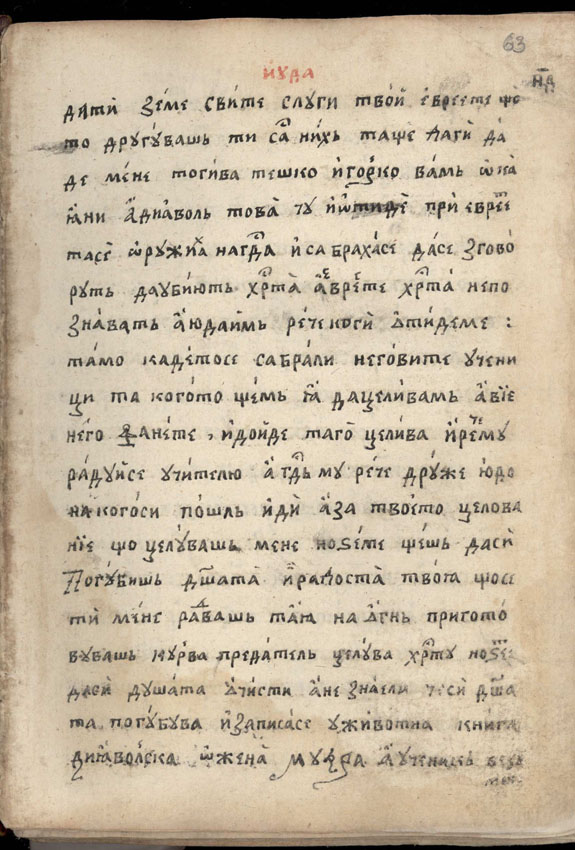 63
іі́ꙋда
н҃д
дати̂ зе́ме сви́те слꙋги твои̂ евреете
то дрꙋгꙋ́вашь ти са̑ ни́хъ таѱе лаги̂ да̀
де ме́не тоги́ва тешко и҆го́рко вамь ѡ҆ка
ꙗ҆ни а҆дїа́волъ това̀ тꙋ̀ и҆ѿтиде̂ при̂ евре́е
тасе̂ ѡ҆рꙋжи́ꙗ нагдⷭ҇а и҆ са бра́хасе да́се згово́
рꙋть даꙋби́ють хрⷭ҇та̀ а҆вре́ете хрⷭ҇та̀ непо
зна́вать а҆ ю҆да и҆мь ре́че коги̂ ѿи́деме :
та́мо каде́тосе сабра́ли него́вите ꙋче́ни
ци та кого́то ѱе́мь ꙗ҆̂ дацели́вамь а҆ ві́е
не́го фа́нете , и҆до́йде таго̂ цели́ва и҆ ре́че мꙋ
ра́дꙋйсе ꙋчи́телю а҆ гдⷭ҇ь мꙋ рече дрꙋ́же ю҆до
на кого́си по́шль и҆ди̂ а҆за твое́то целова
ні́е ѱо целꙋ́вашь мене но ѕе́ме ѱе́шь даси̂
погꙋ́бишь дш҃ата̀ и҆ ра́достѧ̀ твоꙗ̀ ѱосе
ти̂ ме́не рад́вашь таꙗ̀ на ѻ҆гнь пригото́
вꙋвашь кꙋ́рва преда́тель целꙋ́ва хрⷭ҇тꙋ но ѕе
даси̂ дꙋша́та ѻ҆чи́сти а҆ не зна́ели чеси̂ дш҃а
та погꙋ́бꙋва и҆за́писасе ꙋ живо́тна книга
диꙗ҆во́лска ѡ҆жена̀ а҆ ꙋчени́цы